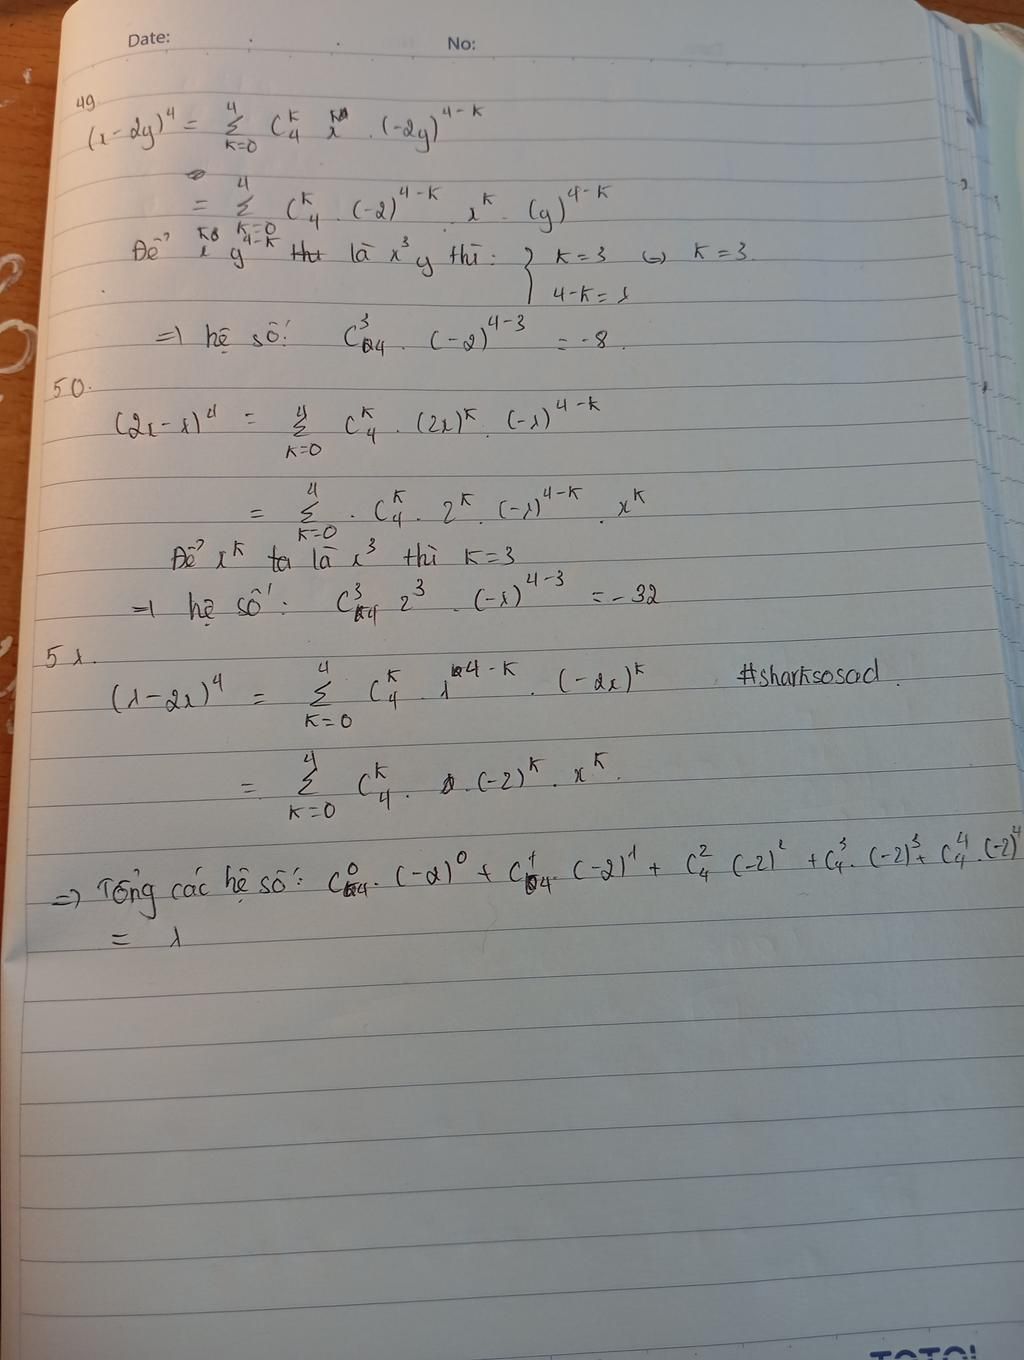 Date: No:
49
(x-2y)^4 = Σ_{k=0}^{4} C_4^k x^k . (-2y)^{4-k}
= Σ_{k=0}^{4} C_4^k . (-2)^{4-k} . x^k . (y)^{4-k}
Để x^k y^{4-k} là x^3y thì: { k=3 ⇔ k=3.
4-k=1
⇒ hệ số: C_4^3 . (-2)^{4-3} = -8.
50.
(2x-1)^4 = Σ_{k=0}^{4} C_4^k . (2x)^k . (-1)^{4-k}
= Σ_{k=0}^{4} . C_4^k . 2^k . (-1)^{4-k} . x^k
Để x^k ta là x^3 thì k=3
⇒ hệ số: C_4^3 2^3 . (-1)^{4-3} = -32
51.
(1-2x)^4 = Σ_{k=0}^{4} C_4^k . 1^{4-k} . (-2x)^k #sharksosad.
= Σ_{k=0}^{4} C_4^k . (-2)^k . x^k.
⇒ Tổng các hệ số: C_4^0 . (-2)^0 + C_4^1 . (-2)^1 + C_4^2 (-2)^2 + C_4^3 . (-2)^3 + C_4^4 . (-2)^4
= 1